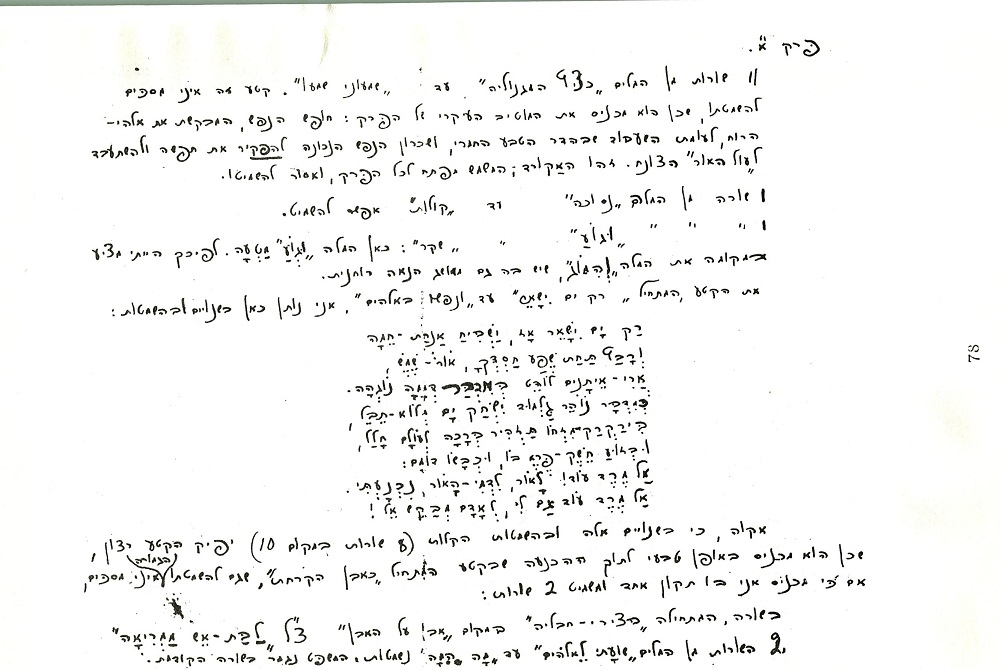 פרק א'.
11 שורות מן המלים "כציף המגנוליה" עד "שמעוני שמעו". קטע זה איני מסכים
להשמטתו, שכן הוא מכניס את המוטיב העיקרי של הפרק: חופש הנפש, המבקשת את אלהי-
הרוח, לעומת השעבוד שבהדר הטבע החמרי, ושכרון הנפש הנכונה להפקיר את חפשה ולהשתעבד
"לעול האור" הצונח. זהו האקורד, המשמש מפתח לכל הפרק, ואסור להשמיטו.
1 שורה מן המלים "נסוכה" עד "קולות" אפשר להשמיט.
1 " " " "וגוע" " "שקר": כאן המלה "וגוע" מטעה. לפיכך הייתי מציע
במקומה את המלה, שיש בה גם מושג הנאה רוחנית.
את הקטע, המתחיל "רק ים ישאר" עד "ונפשו באלהים", אני נותן כאן בשנויים ובהשמטות:
רַק יָם יִשָּׁאֵר אָז, וְיַשְׁבִּיחַ אַנְחַת-חֵמָה
תַּחַת שֶׁפַע חַסְדְּךָ, אוֹר-שֶׁמֶשׁ,
אֲרִי-אֵיתָנִים לוֹהֵט בְּמִדְבַּר דְּמָמָה נוֹגְהָה.
כְּמִדְבָּר נוֹהֵר גַּלְמוּד יִשְׂחַק יָם מְלוֹא-תֵבֵל,
תַּזְהִיר בְּרָכָה לְעוֹלָם חָלָל,
חֵשֶׁק-פֶּרֶא בּוֹ, וּיכַבְּשׁוֹ דוֹמֵם:
אַל מֶרֶד עוֹד! לָאוֹר, לְדְמִי-הָאוֹר, נִכְנַעְתִּי.
אַל מֶרֶד עוֹד גַּם לִי, לָאָדָם מְבַקֵּשׁ אֵל!
אקוה, כי בשנויים אלה ובהשמטות הקלות (8 שורות במקום 10) יפיק הקטע רצון,
שכן הוא מכניס באופן טבעי לתוך ההכנעה שבקטע המתחיל "כאבן הקרחת", שגם להשמטתו הגמורה איני מסכים,
אם כי מכניס אני בו תקון אחד ומשמיט 2 שורות:
בשורה, המתחילה "בצירי-חבליה" במקום "אבו על האבן" צ"ל "לַבַּת-אֵשׁ מַמְרִיאָה"
2 השורות מן המלים "שועתי לאלהים" עד "מה המה" נשמטות. המשפט נגמר בשורה הקודמת.
78